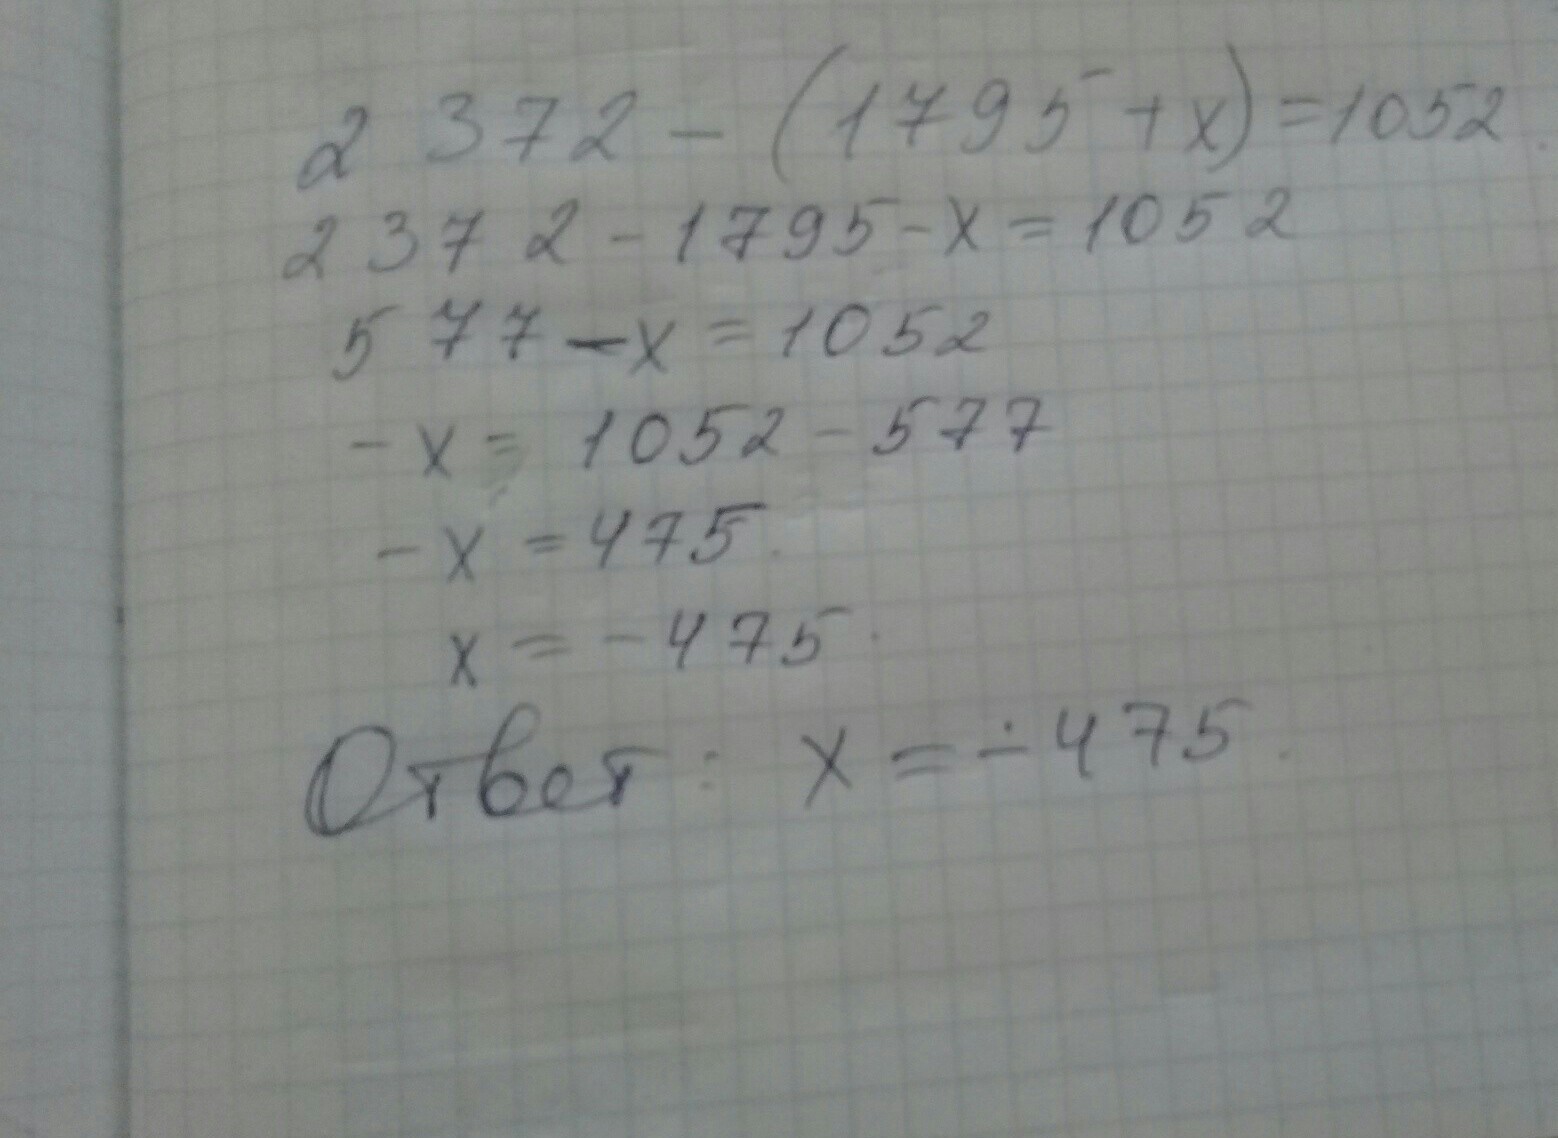 2 372 - (1795 + x) = 1052
2372 - 1795 - x = 1052
577 - x = 1052
- x = 1052 - 577
- x = 475.
x = - 475.
Ответ: x = - 475.